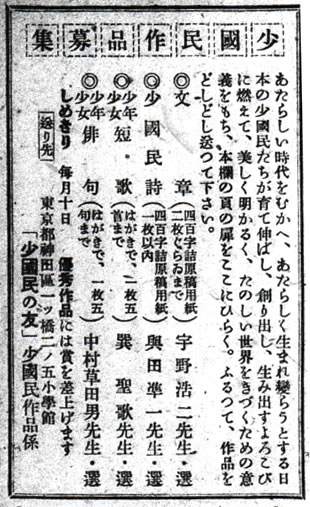 少國民作品募集
あたらしい時代をむかへ、あたらしく生まれ變らうとする日
本の少國民たちが育て伸ばし、創り出し、生み出すよろこび
に燃えて、美しく明かるく、たのしい世界をきづくための意
義をもち、本欄の頁の扉をここにひらく。ふるつて、作品を
どしどし送つて下さい。
◎文章(四百字詰原稿用紙二枚ぐらゐまで)宇野浩二先生・選
◎少國民詩(四百字詰原稿用紙一枚以内)與田凖一先生・選
◎少年少女短歌(はがきで、一枚五首まで)巽聖歌先生・選
◎少年少女俳句(はがきで、一枚五句まで)中村草田男先生・選
しめきり 毎月十日 優秀作品には賞を差上げます
送り先 東京都神田區一ッ橋二ノ五小學館
「少國民の友」少國民作品係